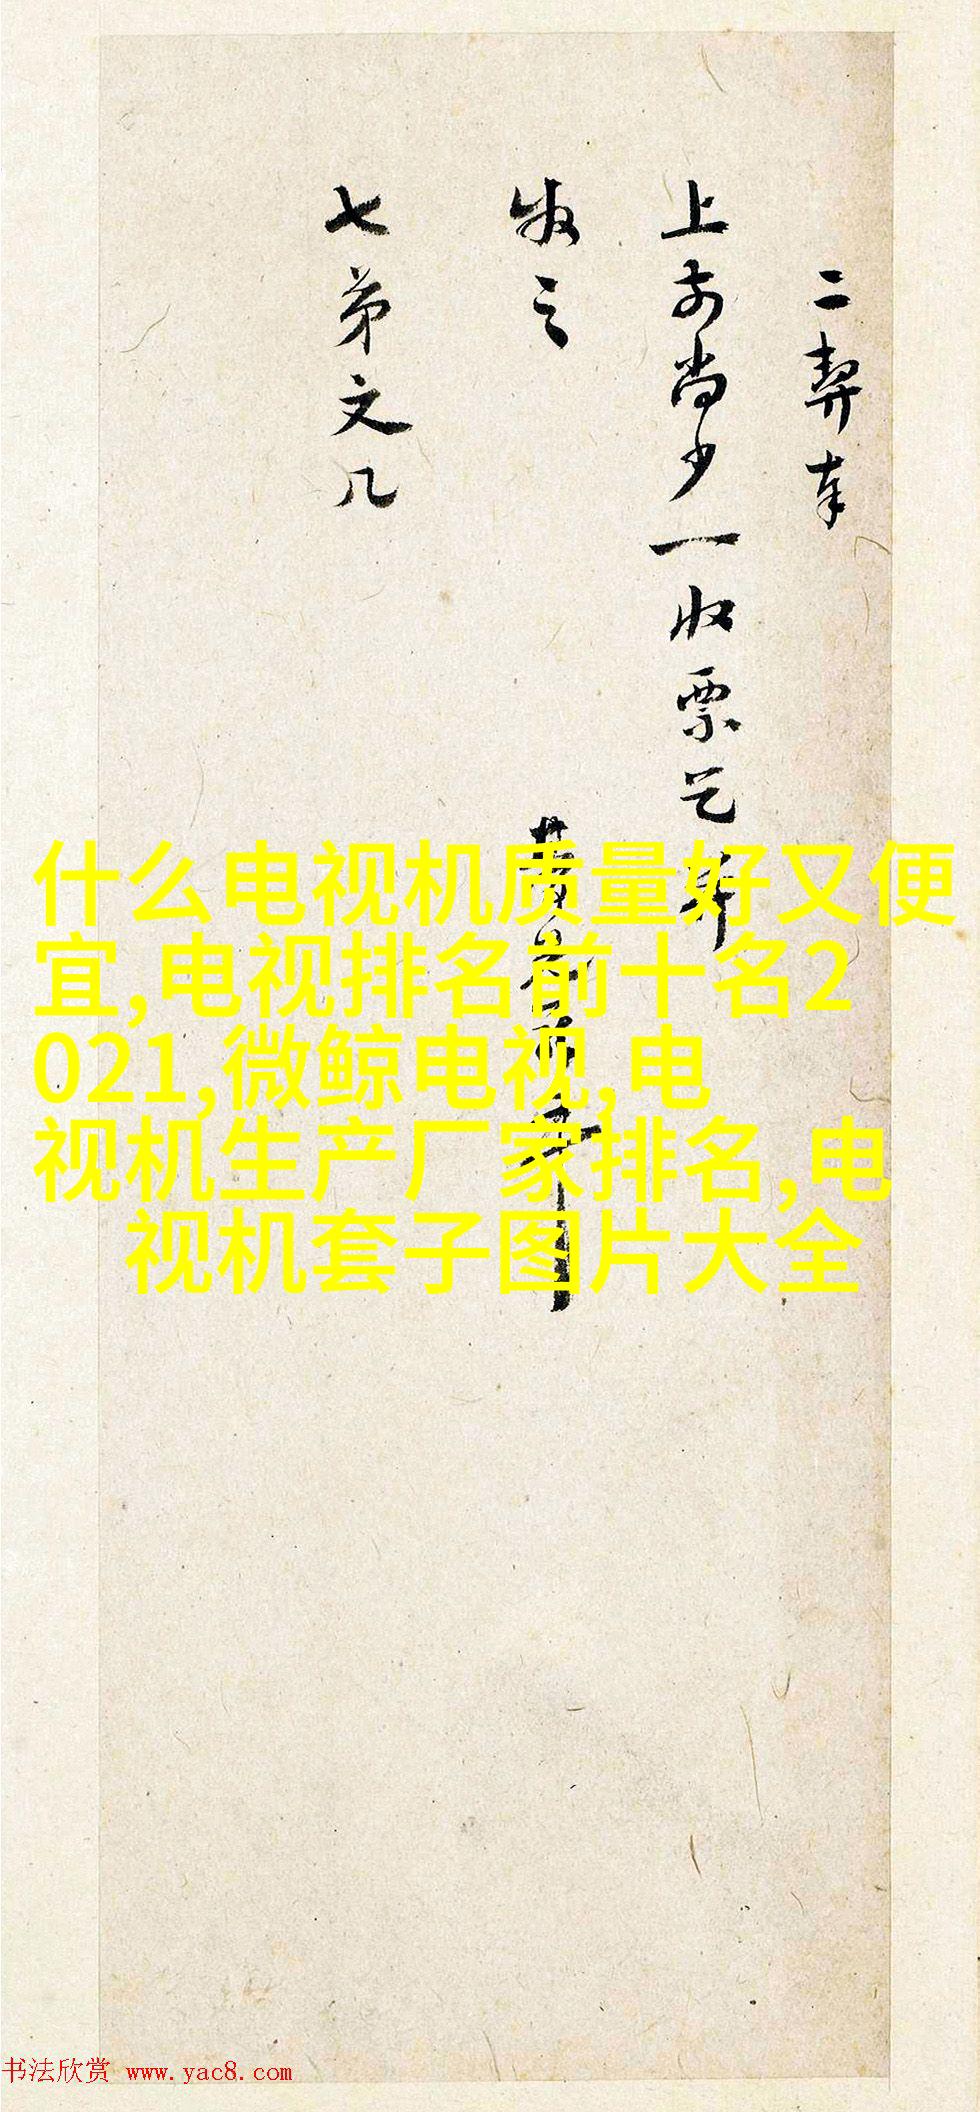 二契奉
上前尚少一收票乞并
发之
七弟文几
什么电视机质量好又便
宜,电视排名前十名2
021,微鲸电视,电
视机生产厂家排名,电
视机套子图片大全
书法欣赏 www.yac8.com